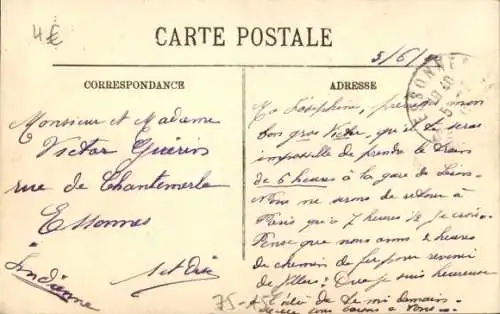 4€
CARTE POSTALE
5/6/
CORRESPONDANCE
Monsieur et Madame
Victor Guérin
rue de Chantemerle
Essonnes
S et Oise
ADRESSE
ESSONNES
Ma Joséphine, mon
bon gros Victor, qu'il te serai
impossible de prendre le train
de 6 heures à la gare de
Nous ne serons de retour à
Paris qu'à 7 heures ½ je crois.
Pense que nous avons 2 heures
de chemin de fer pour revenir
de Que je suis heureuse
à l'idée de